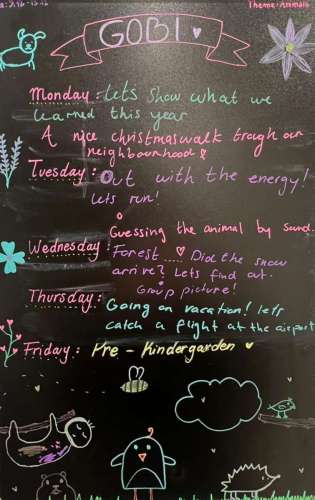 Theme: Animals
GOBI
Monday: Lets show what we
learned this year
A nice christmaswalk trough our
neighbourhood!
Tuesday: Out with the energy!
Lets run!
Guessing the animal by sound.
Wednesday: Forest..... Did the snow
arrive? Lets find out.
Group picture!
Thursday: Going on vacation! lets
catch a flight at the airport
Friday: Pre - Kindergarden